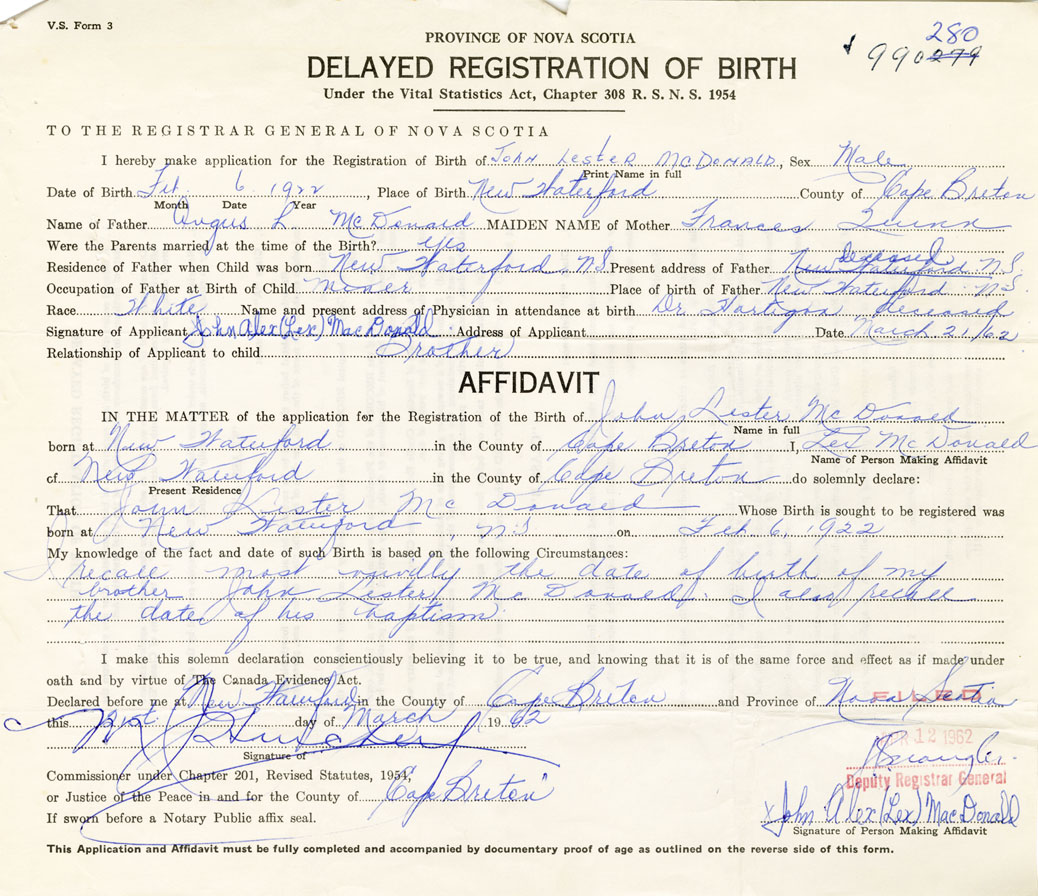 V.S. Form 3
280
PROVINCE OF NOVA SCOTIA
990279
DELAYED REGISTRATION OF BIRTH
Under the Vital Statistics Act, Chapter 308 R. S. N. S. 1954
TO THE REGISTRAR GENERAL OF NOVA SCOTIA
I hereby make application for the Registration of Birth of John Lester McDonald, Sex Male
Print Name in full
Date of Birth Feb. 6 1922, Place of Birth New Waterford County of Cape Breton
Month Date Year
Name of Father Angus L McDonald MAIDEN NAME of Mother Frances Quinn
Were the Parents married at the time of the Birth? yes
deceased
Residence of Father when Child was born New Waterford N.S. Present address of Father New Waterford N.S.
Occupation of Father at Birth of Child Miner Place of birth of Father New Waterford N.S.
Race White Name and present address of Physician in attendance at birth Dr. Hartigan Deceased
Signature of Applicant John Alex (Lex) MacDonald Address of Applicant Date March 21/62
Relationship of Applicant to child Brother
AFFIDAVIT
IN THE MATTER of the application for the Registration of the Birth of John Lester McDonald
Name in full
born at New Waterford in the County of Cape Breton I, Lex McDonald
Name of Person Making Affidavit
of New Waterford in the County of Cape Breton do solemnly declare:
Present Residence
That John Lester McDonald Whose Birth is sought to be registered was
born at New Waterford, N.S on Feb. 6, 1922
My knowledge of the fact and date of such Birth is based on the following Circumstances:
I recall most vividly the date of birth of my
brother John Lester McDonald. I also recall
the date of his baptism.
I make this solemn declaration conscientiously believing it to be true, and knowing that it is of the same force and effect as if made under
oath and by virtue of The Canada Evidence Act.
Declared before me at New Waterford in the County of Cape Breton and Province of Nova Scotia
FILED
this 21st day of March 1962
APR 12 1962
Signature of
Commissioner under Chapter 201, Revised Statutes, 1954,
Deputy Registrar General
or Justice of the Peace in and for the County of Cape Breton
John Alex (Lex) MacDonald
If sworn before a Notary Public affix seal.
Signature of Person Making Affidavit
This Application and Affidavit must be fully completed and accompanied by documentary proof of age as outlined on the reverse side of this form.